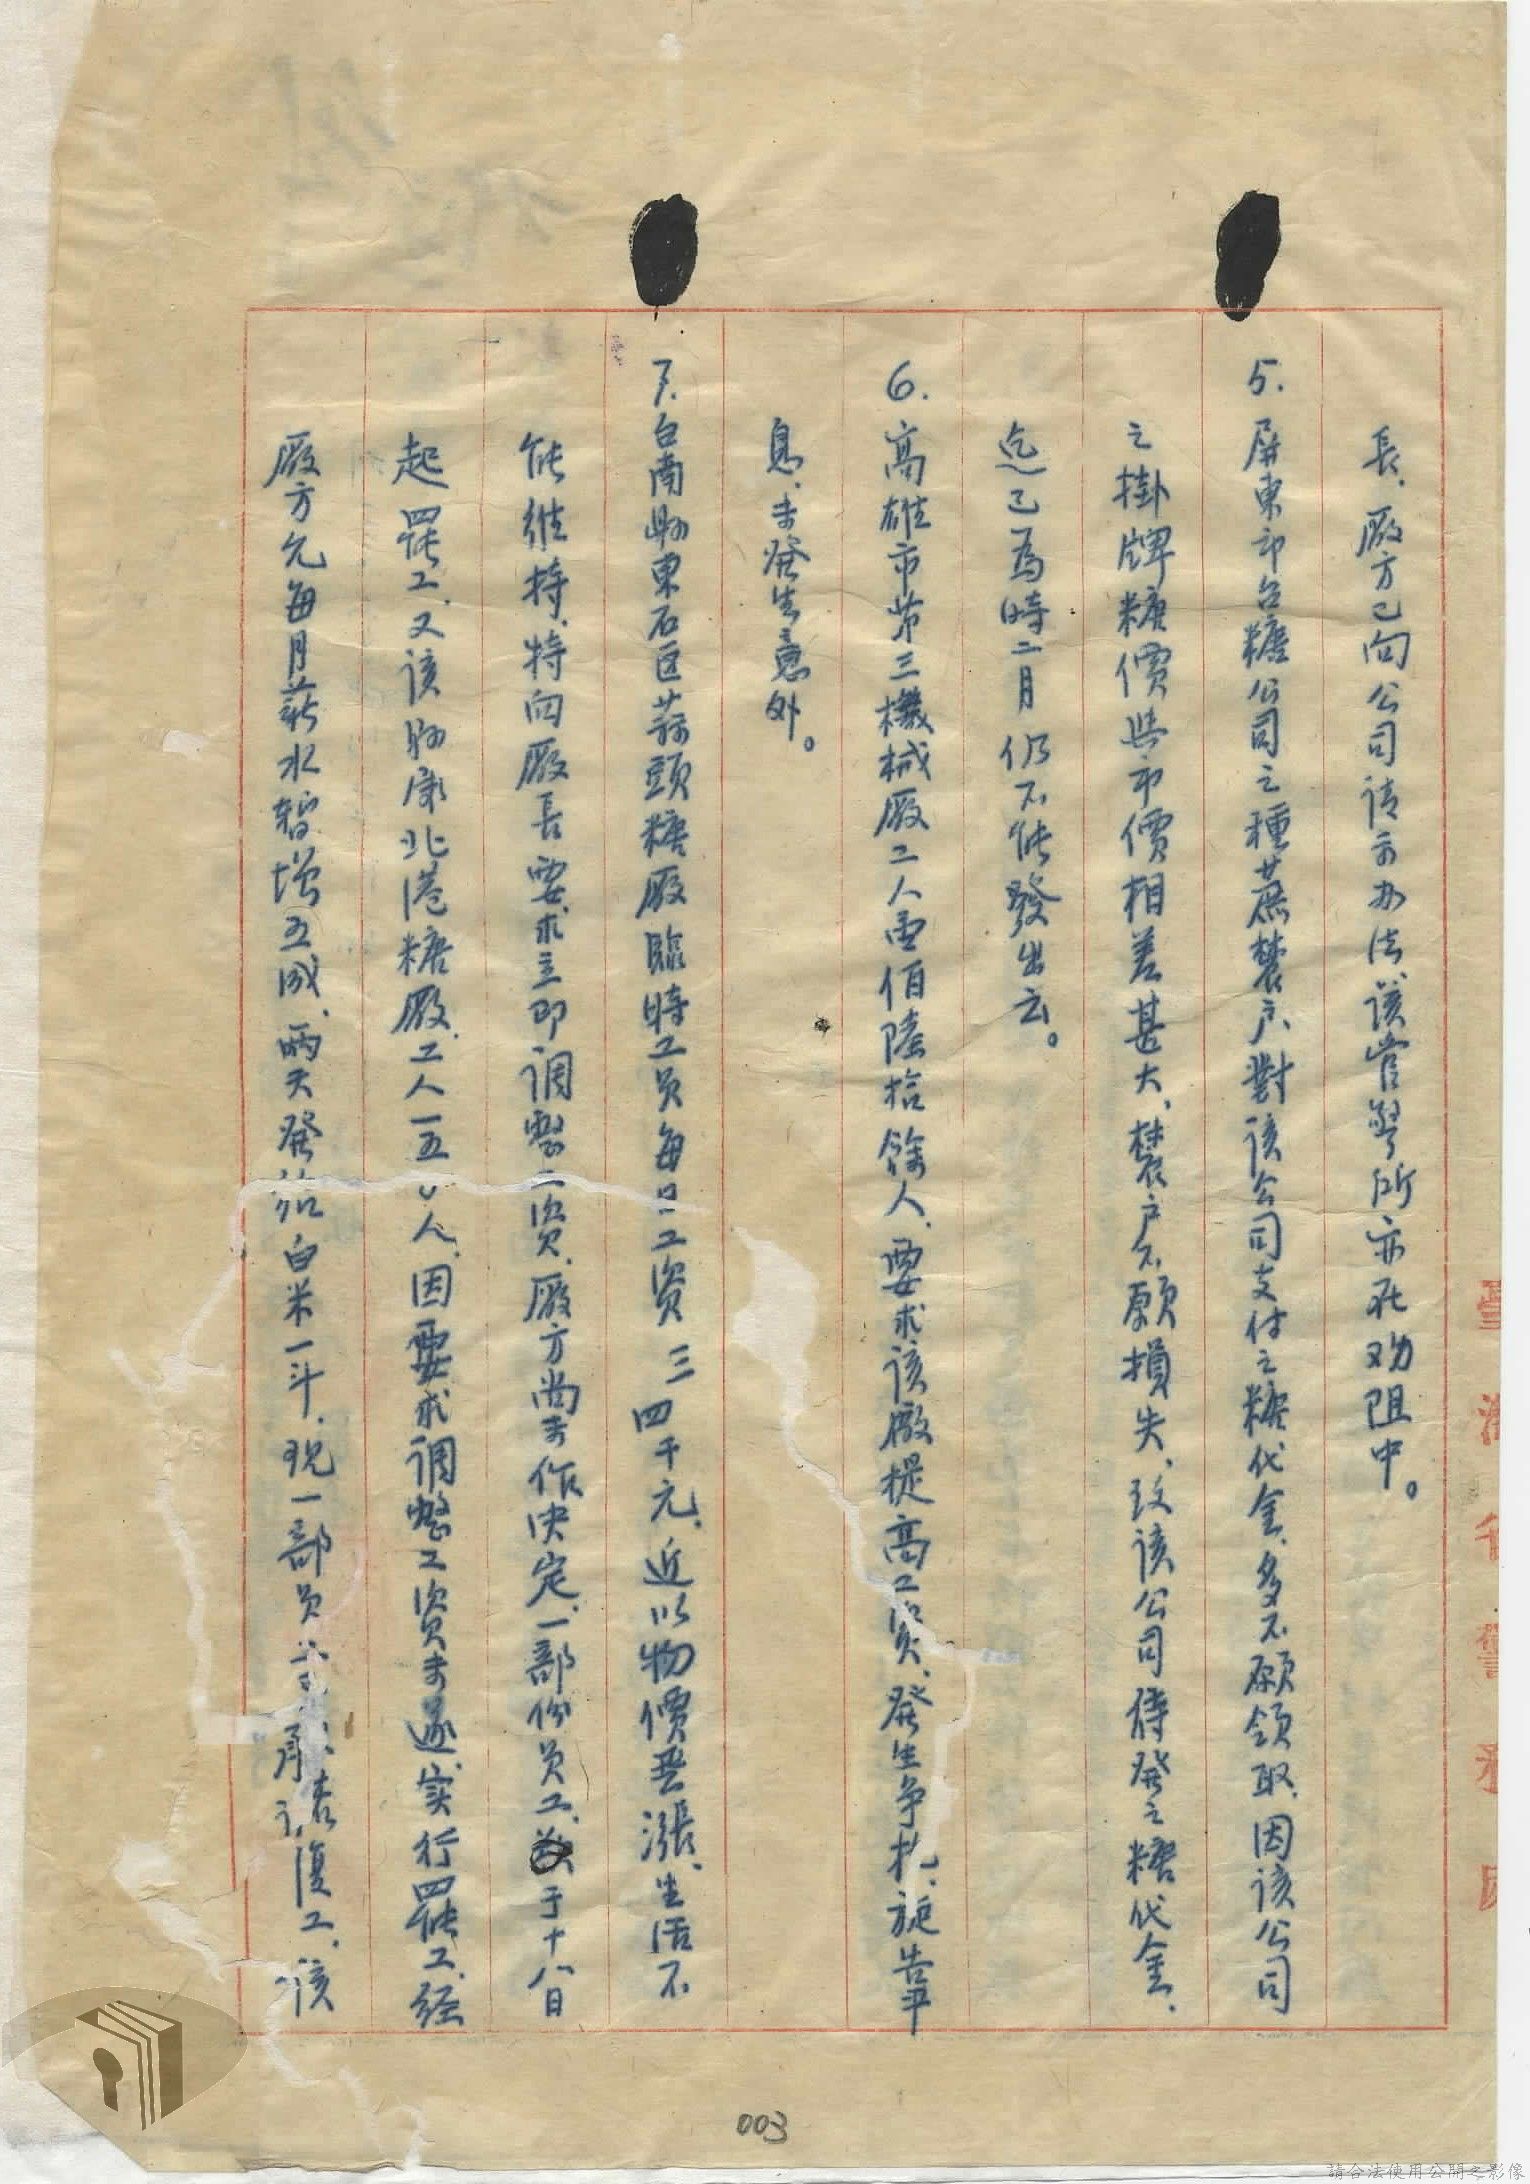 長、廠方已向公司請示办法該管警所亦在劝阻中。
5. 屏東市台糖公司之種蔗農户、對該公司支付之糖代金、多不願領取、因該公司
之掛牌糖價与市價相差甚大、農户不願損失、致該公司待發之糖代金、
迄已為時二月仍不能發出云。
6. 高雄市第三機械廠工人壹佰陸拾餘人、要求該廠提高工資、發生争执、旋告平
息、未發生意外。
7. 台南縣東石区蒜頭糖廠臨時工員每日工資三四千元、近以物價暴漲、生活不
能維持、特向廠長要求立即調整工資、廠方尚未作決定、一部份員工、于十八日
起罷工、又该縣北港糖廠、工人一五〇人、因要求調整工資未遂、实行罷工、经
廠方允每月薪水暫增五成、兩天發給白米一斗、現一部員工承諾復工、该
臺灣省警務處
003
請合法使用公開之影像